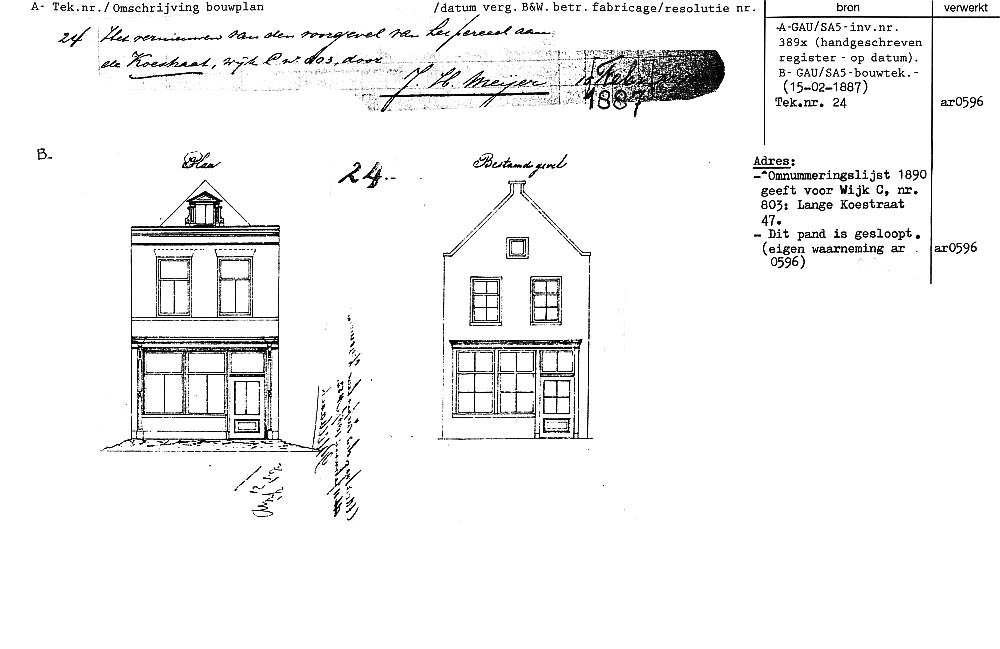 A- Tek.nr./ Omschrijving bouwplan /datum verg. B&W. betr. fabricage/resolutie nr. bron verwerkt
24 Het vernieuwen van den voorgevel van het perceel aan
de Koestraat, wijk C no 803, door
J. H. Meijer 15 Febr.
1887
-A-GAU/SA5-inv.nr.
389x (handgeschreven
register - op datum).
B- GAU/SA5-bouwtek.-
(15-02-1887)
Tek.nr. 24 ar0596
B-
Plan
24.-
Bestaande gevel
Adres:
-"Omnummeringslijst 1890
geeft voor Wijk C, nr.
803: Lange Koestraat
47.
- Dit pand is gesloopt.
(eigen waarneming ar ar0596
0596)